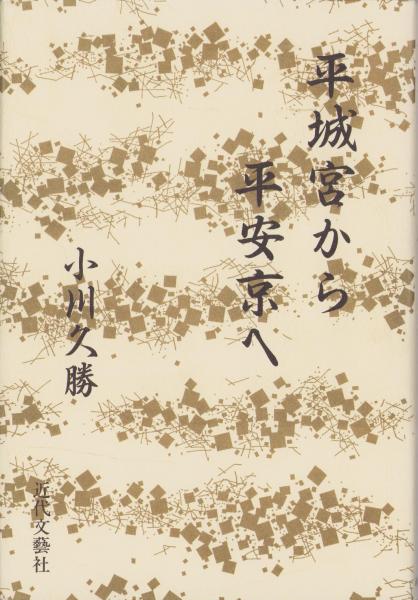 平城宮から
平安京へ
小川久勝
近代文藝社